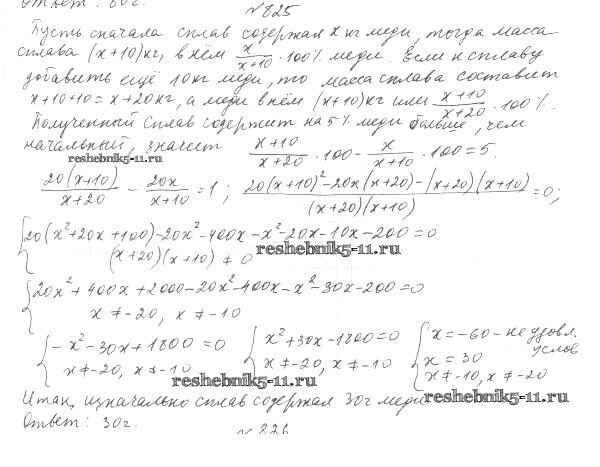 Ответ: 80г.
№825
Пусть сначала сплав содержал x кг меди, тогда масса
сплава (x+10)кг, в нём x/(x+10) · 100% меди. Если к сплаву
добавить ещё 10кг меди, то масса сплава составит
x+10+10=x+20кг, а меди в нём (x+10)кг или (x+10)/(x+20) · 100%.
Полученный сплав содержит на 5% меди больше, чем
начальный, значит (x+10)/(x+20) · 100 - x/(x+10) · 100 = 5.
reshebnik5-11.ru
20(x+10)/(x+20) - 20x/(x+10) = 1; (20(x+10)²-20x(x+20)-(x+20)(x+10))/((x+20)(x+10)) = 0;
{20(x²+20x+100)-20x²-400x-x²-20x-10x-200=0
(x+20)(x+10) ≠ 0
reshebnik5-11.ru
{20x²+400x+2000-20x²-400x-x²-30x-200=0
x ≠ -20, x ≠ -10
{-x²-30x+1800=0 {x²+30x-1800=0 {x=-60 - не удовл. услов
x ≠ -20, x ≠ -10 x ≠ -20, x ≠ -10 x = 30
x ≠ -10, x ≠ -20
reshebnik5-11.ru
Итак, изначально сплав содержал 30г меди
reshebnik5-11.ru
Ответ: 30г.
№826